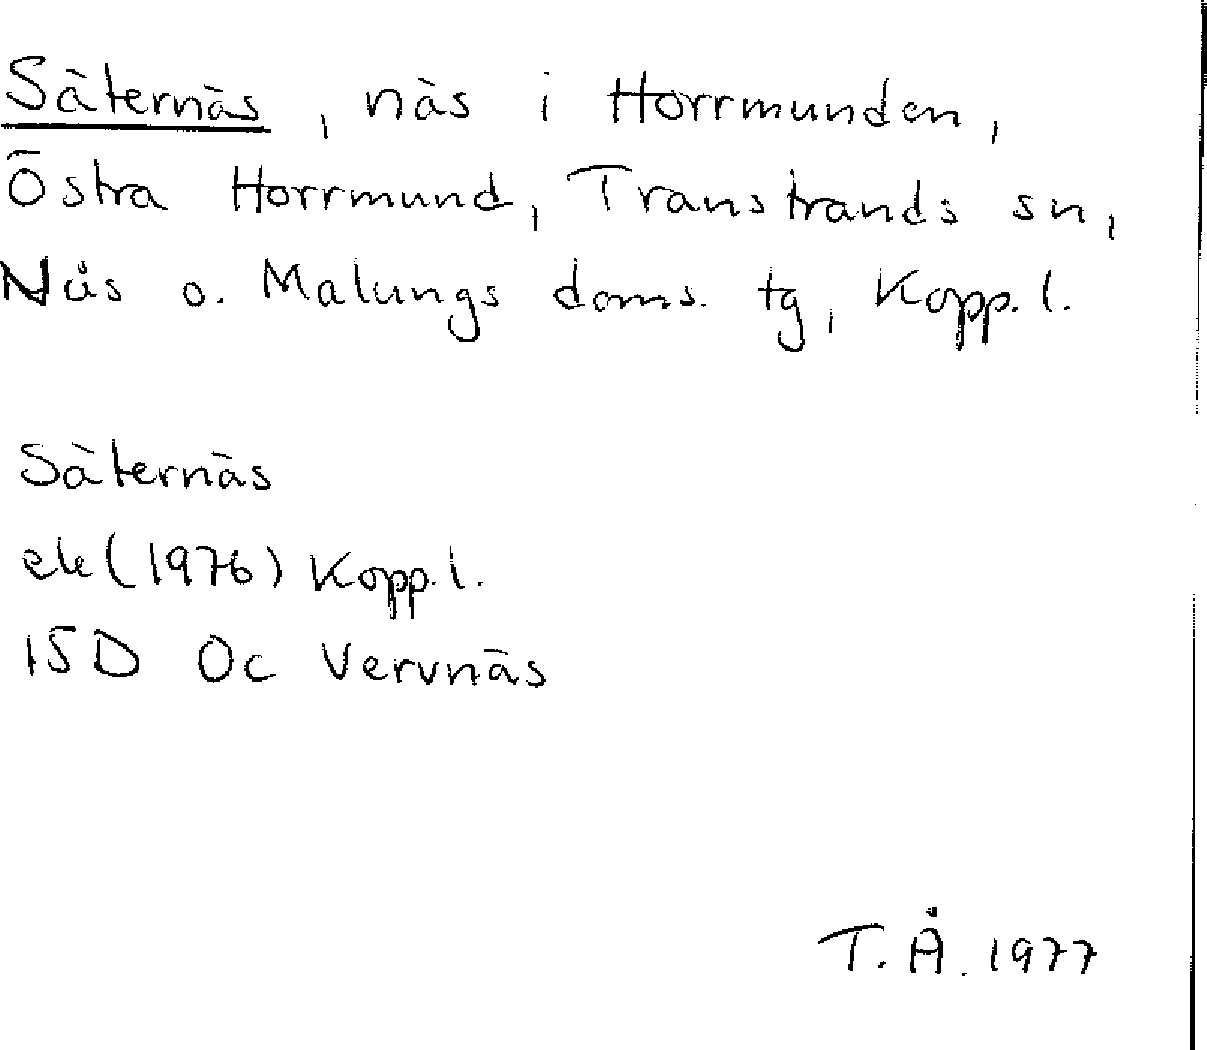 Säternäs, näs i Horrmunden,
Östra Horrmund, Transtrands sn,
Nås o. Malungs doms. tg, Kopp. l.
Säternäs
ek (1976) Kopp. l.
15D Oc Vervnäs
T.Å. 1977